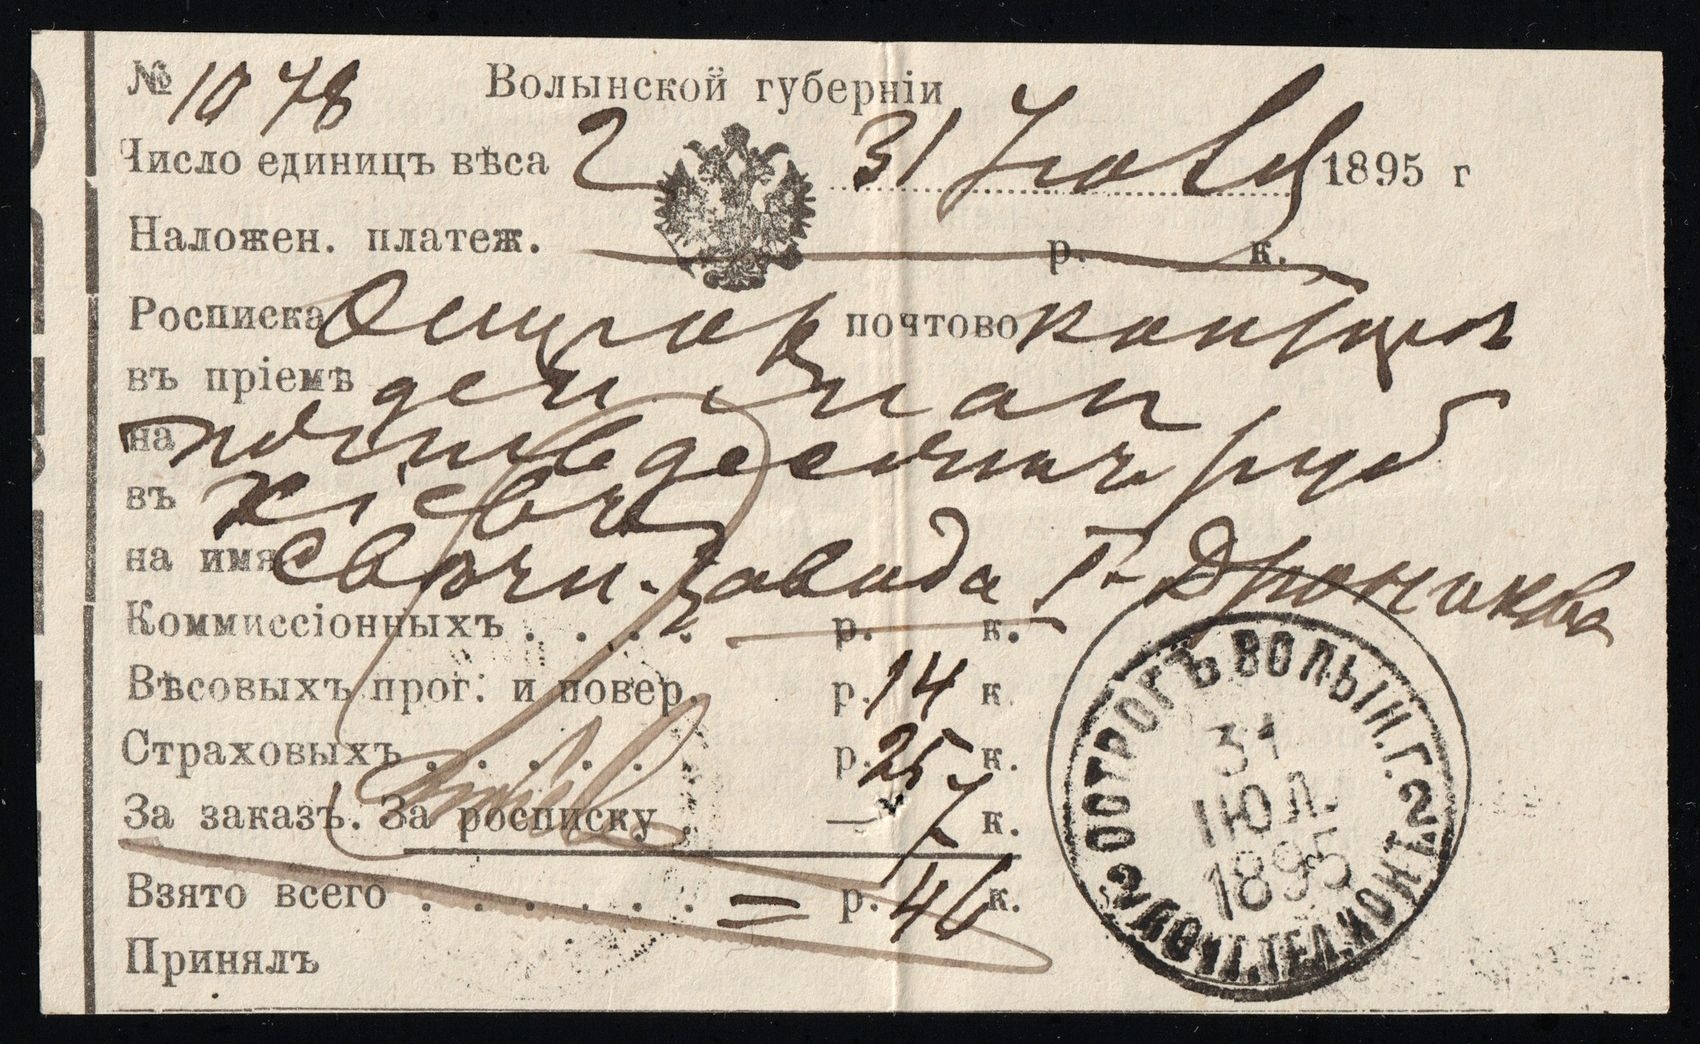 № 1078 Волынской губерніи
Число единицъ вѣса 2 31 Іюля 1895 г
Наложен. платеж. р. к.
Росписка Острог почтово конторы
въ пріемѣ ден пак
на пятьдесятъ руб
въ Кіевъ
на имя Свѣчн. завода Г.
Коммиссіонныхъ . . . . р. к.
Вѣсовых прог. и повер. р. 14 к.
Страховыхъ . . . . . р. 25 к.
За заказъ. За росписку . — 7 к.
Взято всего . . . . . . = р. 46 к.
Принялъ
ОСТРОГЪ ВОЛЫН. Г. 2
31
ІЮЛ.
1895
2 ПОЧТ. ТЕЛ. КОНТ.